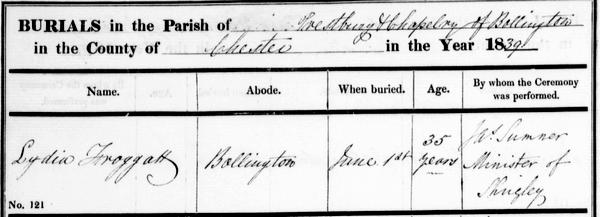 BURIALS in the Parish of Prestbury & Chapelry of Bollington
in the County of Chester in the Year 1839
Name. Abode. When buried. Age. By whom the Ceremony was performed.
Lydia Froggatt Bollington June 1st 35 years Jas. Sumner Minister of Shrigley
No. 121